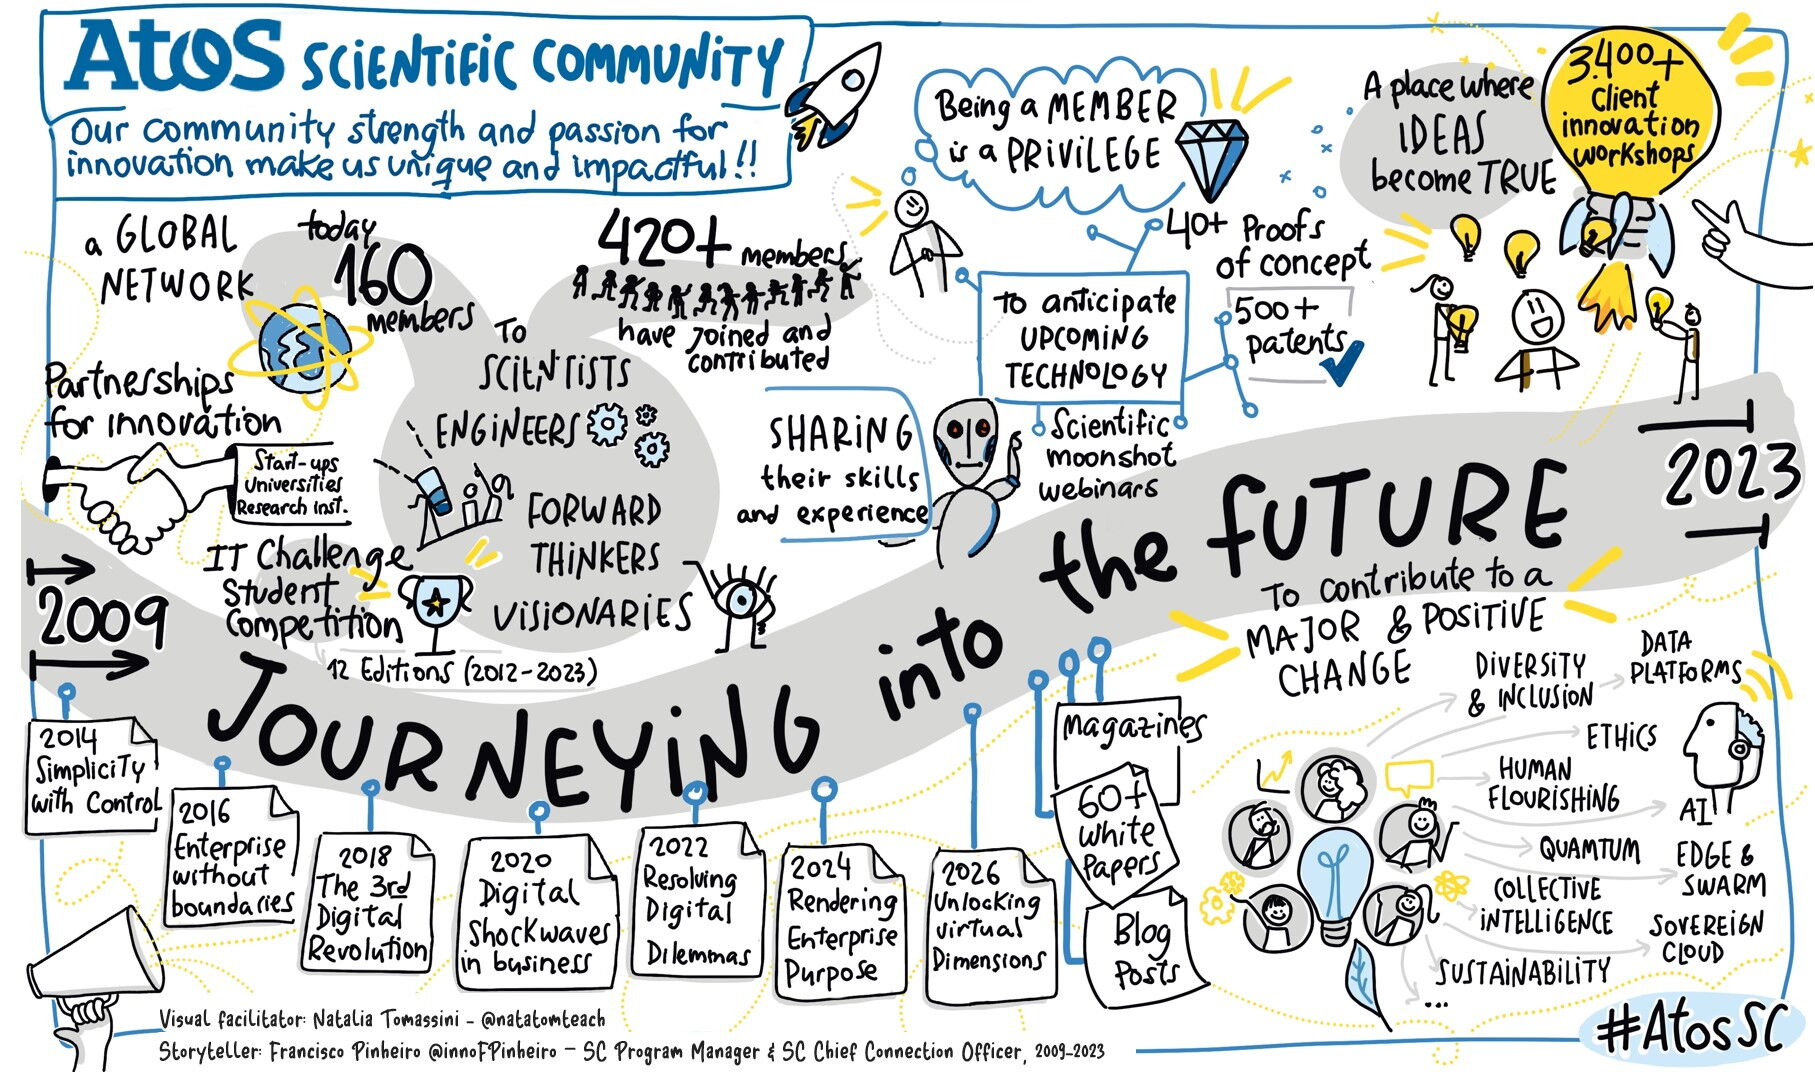 Atos SCIENTIFIC COMMUNITY
Our community strength and passion for
innovation make us unique and impactful!!
a GLOBAL
NETWORK
today
160
members
Partnerships
for innovation
Start-ups
Universities
Research Inst.
IT Challenge
Student
Competition
12 Editions (2012-2023)
TO
SCIENTISTS
ENGINEERS
FORWARD
THINKERS
VISIONARIES
420+ members
have joined and
contributed
Being a MEMBER
is a PRIVILEGE
SHARING
their skills
and experience
To anticipate
UPCOMING
TECHNOLOGY
40+ Proofs
of concept
500+
patents
Scientific
moonshot
webinars
A place where
IDEAS
become TRUE
3.400+
Client
innovation
workshops
2009
JOURNEYING into the FUTURE
2023
2014
Simplicity
with Control
2016
Enterprise
without
boundaries
2018
The 3rd
Digital
Revolution
2020
Digital
Shockwaves
in business
2022
Resolving
Digital
Dilemmas
2024
Rendering
Enterprise
Purpose
2026
Unlocking
virtual
Dimensions
Magazines
60+
White
Papers
Blog
Posts
To contribute to a
MAJOR & POSITIVE
CHANGE
DIVERSITY
& INCLUSION
DATA
PLATFORMS
ETHICS
HUMAN
FLOURISHING
AI
QUAMTUM
EDGE &
SWARM
COLLECTIVE
INTELLIGENCE
SOVEREIGN
CLOUD
SUSTAINABILITY
...
#AtosSC
Visual facilitator: Natalia Tomassini - @natatomteach
Storyteller: Francisco Pinheiro @innoFPinheiro - SC Program Manager & SC Chief Connection Officer, 2009-2023